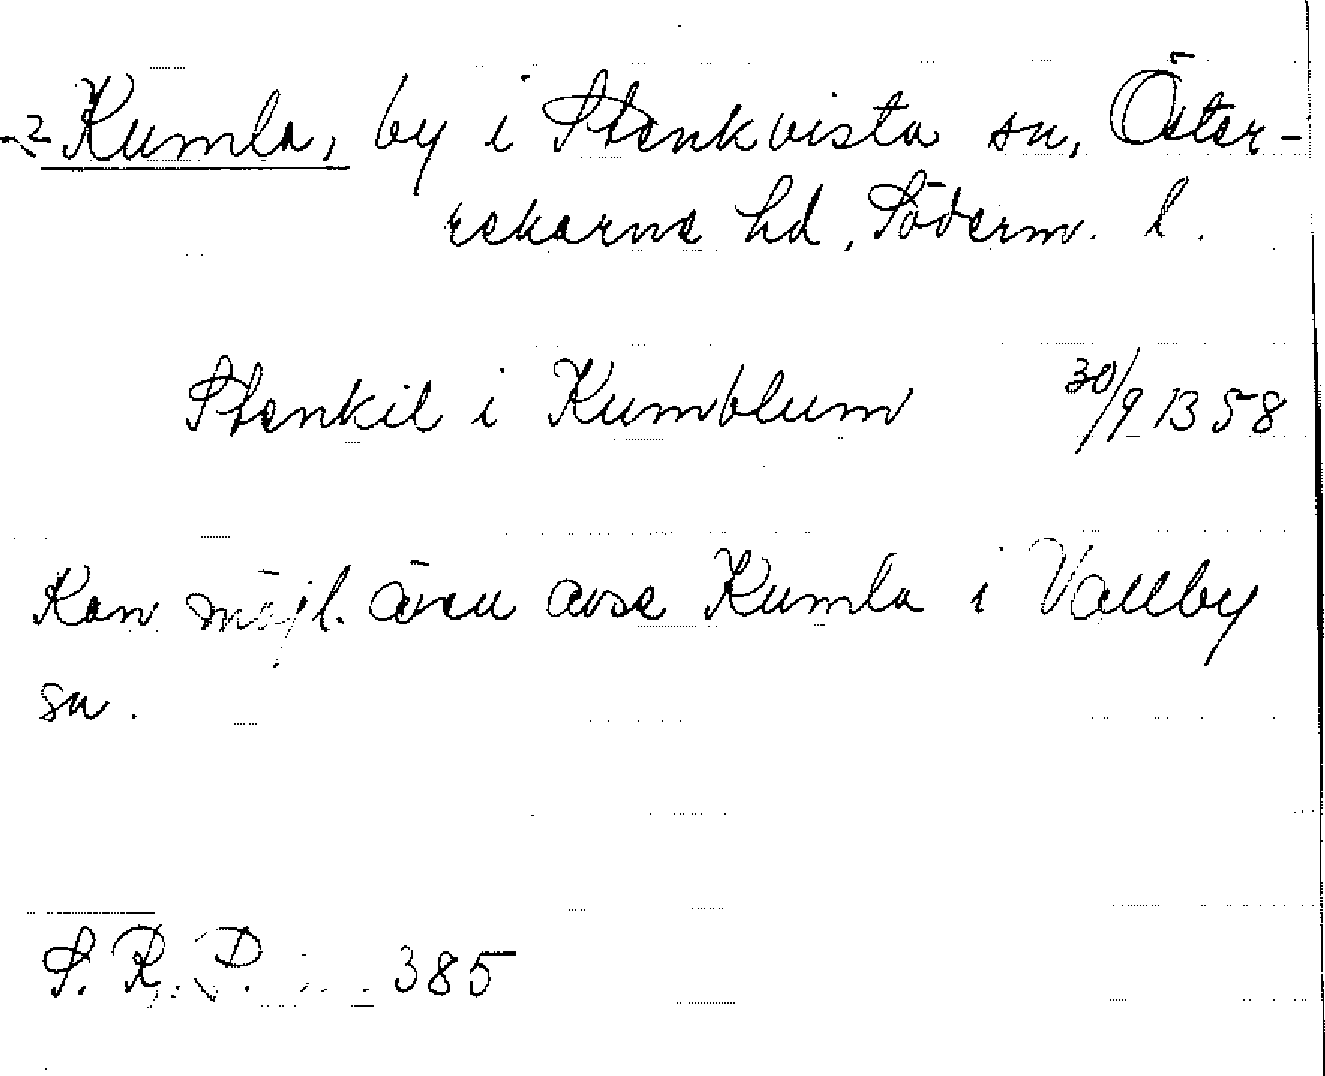 -2- Kumla, by i Stenkvista sn, Öster-
rekarne hd, Söderm. l.
Stenkil i Kumblum 30/9 1358
Kan möjl. även avse Kumla i Vallby
sn.
S. R. P. 385